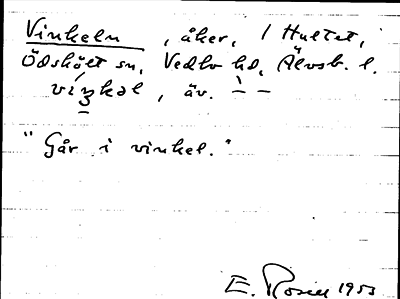 Vinkeln, åker, 1 Hultet,
Ödskölt sn, Vedbo hd, Älvsb. l.
víŋkəl, äv. ` – –
"Går i vinkel."
E. Rosell 1953